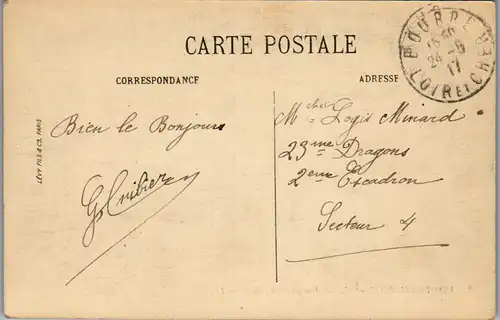 CARTE POSTALE
CORRESPONDANCE
ADRESSE
BOURRE
15 30
24 - 6
17
LOIR ET CHER
Bien le Bonjour
G. Cribier
M chef Logis Minard
23me Dragons
2eme Escadron
Secteur 4
LÉVY FILS & CIE, PARIS